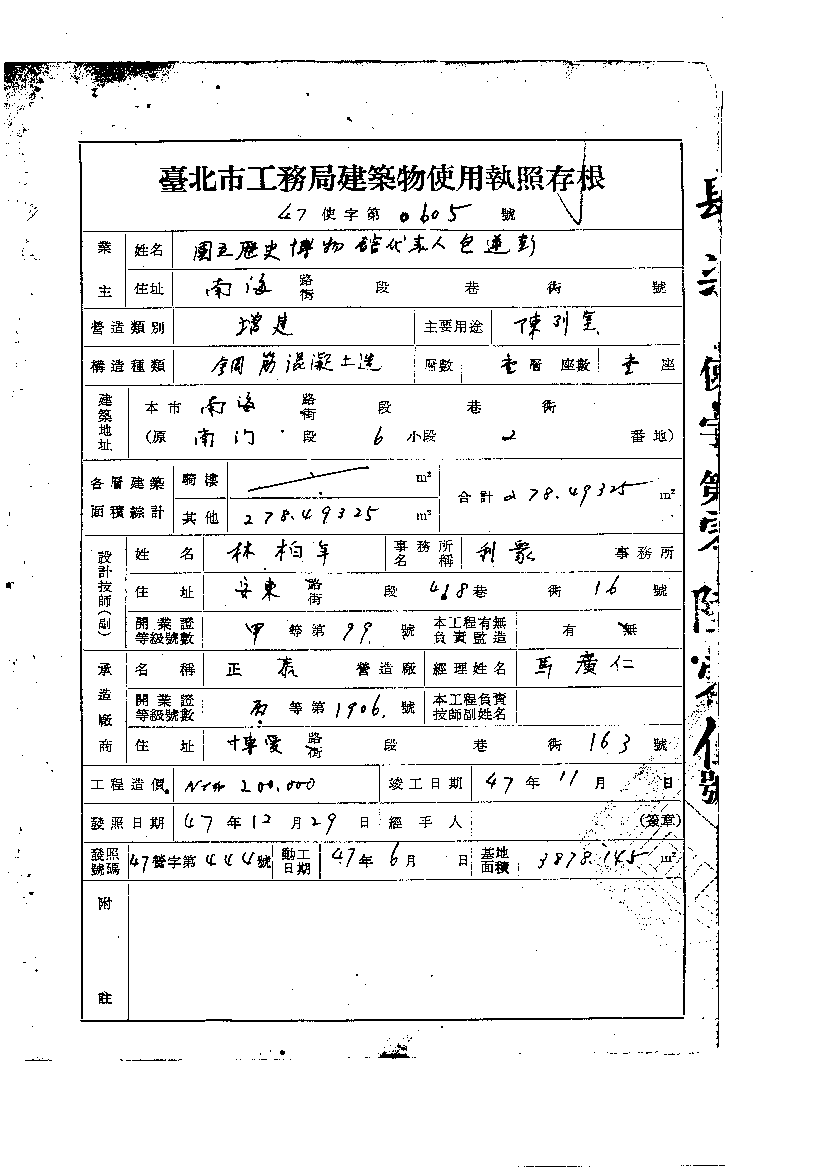 臺北市工務局建築物使用執照存根
47 使字第 0605 號
業主 姓名 國立歷史博物館代表人包遵彭
住址 南海 路街 段 巷 街 號
營造類別 增建 主要用途 陳列室
構造種類 鋼筋混凝土造 層數 壹層 座數 壹座
建築地址 本市 南海 路街 段 巷 街
(原 南門 段 6 小段 2 番地)
各層建築面積綜計 騎樓 m² 合計 278.49325 m²
其他 278.49325 m²
設計技師(副) 姓名 林柏年 事務所名稱 利眾 事務所
住址 安東 路街 段 418 巷 街 16 號
開業證等級號數 甲 等第 99 號 本工程有無負責監造 有 無
承造廠商 名稱 正泰 營造廠 經理姓名 馬廣仁
開業證等級號數 丙 等第 1906 號 本工程負責技師副姓名
住址 博愛 路街 段 巷 街 163 號
工程造價 NT$ 200.000 竣工日期 47 年 11 月 日
發照日期 47 年 12 月 29 日 經手人 (簽章)
發照號碼 47營字第 444 號 動工日期 47 年 6 月 日 基地面積 3878.145 m²
附註
使字第零陸零伍號